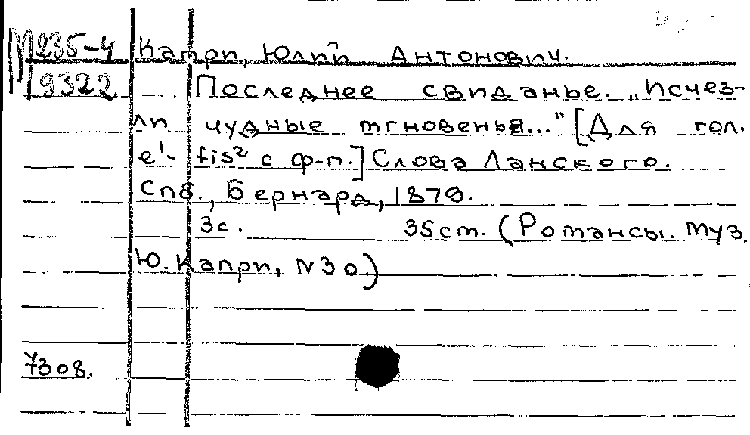 М235-4 Капри, Юлий Антонович.
М9322 Последнее свиданье. „Исчез-
ли чудные мгновенья..." [Для гол.
e¹- fis² с ф-п.] Слова Ланского.
Спб., Бернард, 1870.
3с. 35см. (Романсы муз.
Ю. Капри, N30)
7308.